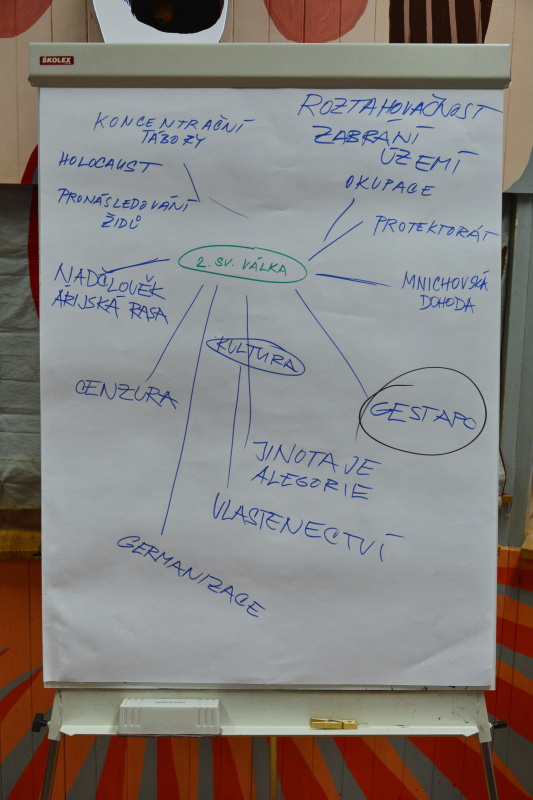 ŠKOLEX
KONCENTRAČNÍ
TÁBORY
HOLOCAUST
PRONÁSLEDOVÁNÍ
ŽIDŮ
NADČLOVĚK
ÁRIJSKÁ RASA
CENZURA
GERMANIZACE
2. SV. VÁLKA
KULTURA
JINOTAJE
ALEGORIE
VLASTENECTVÍ
ROZTAHOVAČNOST
ZABRÁNÍ
ÚZEMÍ
OKUPACE
PROTEKTORÁT
MNICHOVSKÁ
DOHODA
GESTAPO